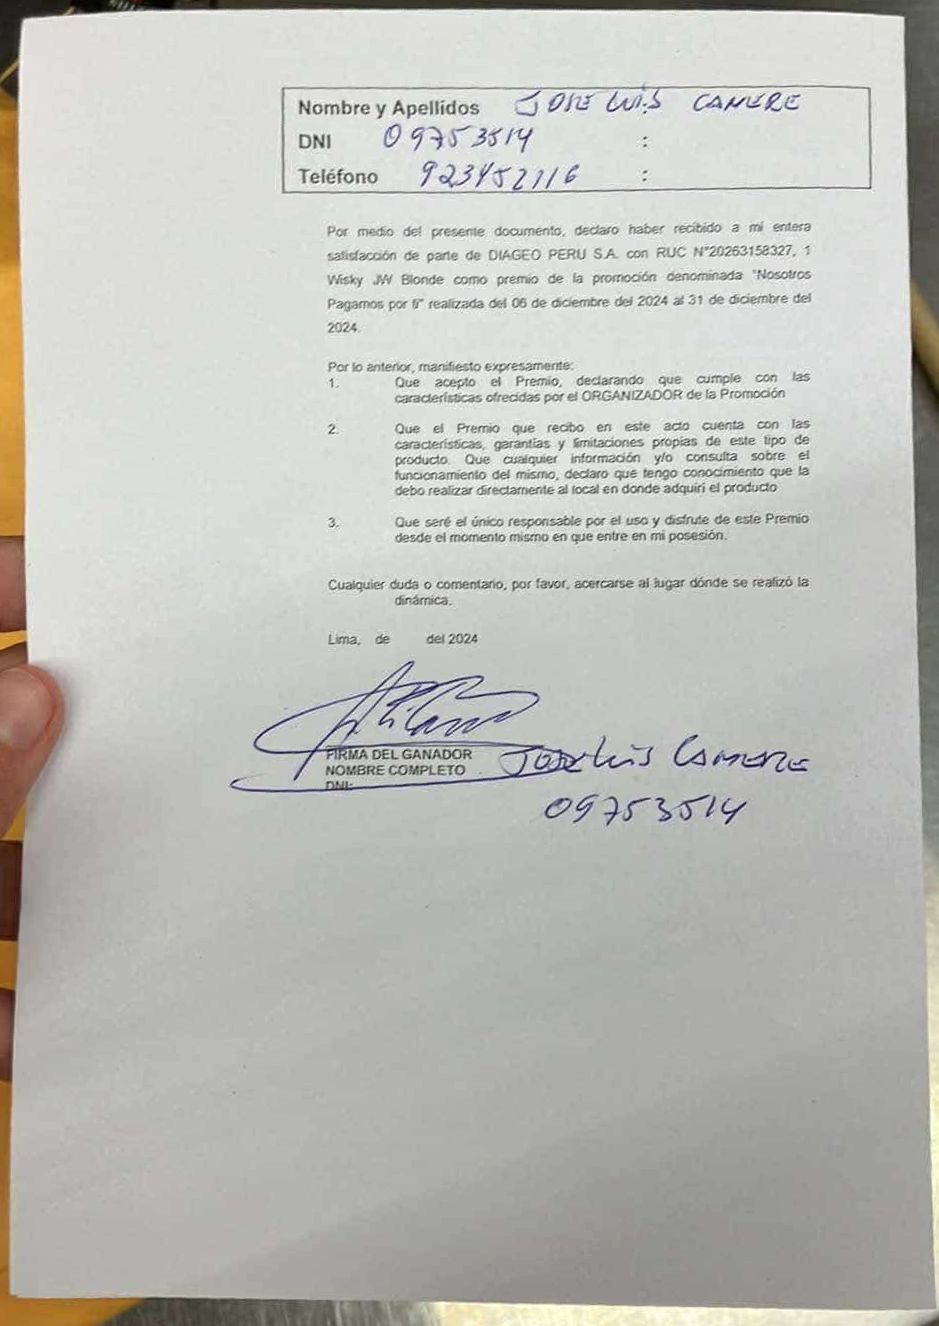 Nombre y Apellidos JOSE LUIS CAMERE
DNI 09753514 :
Teléfono 923452116 :
Por medio del presente documento, declaro haber recibido a mi entera
satisfacción de parte de DIAGEO PERU S.A. con RUC N°20263158327, 1
Wisky JW Blonde como premio de la promoción denominada "Nosotros
Pagamos por ti" realizada del 06 de diciembre del 2024 al 31 de diciembre del
2024.
Por lo anterior, manifiesto expresamente:
1. Que acepto el Premio, declarando que cumple con las
características ofrecidas por el ORGANIZADOR de la Promoción
2. Que el Premio que recibo en este acto cuenta con las
características, garantías y limitaciones propias de este tipo de
producto. Que cualquier información y/o consulta sobre el
funcionamiento del mismo, declaro que tengo conocimiento que la
debo realizar directamente al local en donde adquirí el producto
3. Que seré el único responsable por el uso y disfrute de este Premio
desde el momento mismo en que entre en mi posesión.
Cualquier duda o comentario, por favor, acercarse al lugar dónde se realizó la
dinámica.
Lima, de del 2024
FIRMA DEL GANADOR
NOMBRE COMPLETO Jose Luis CAMERE
DNI:
09753514